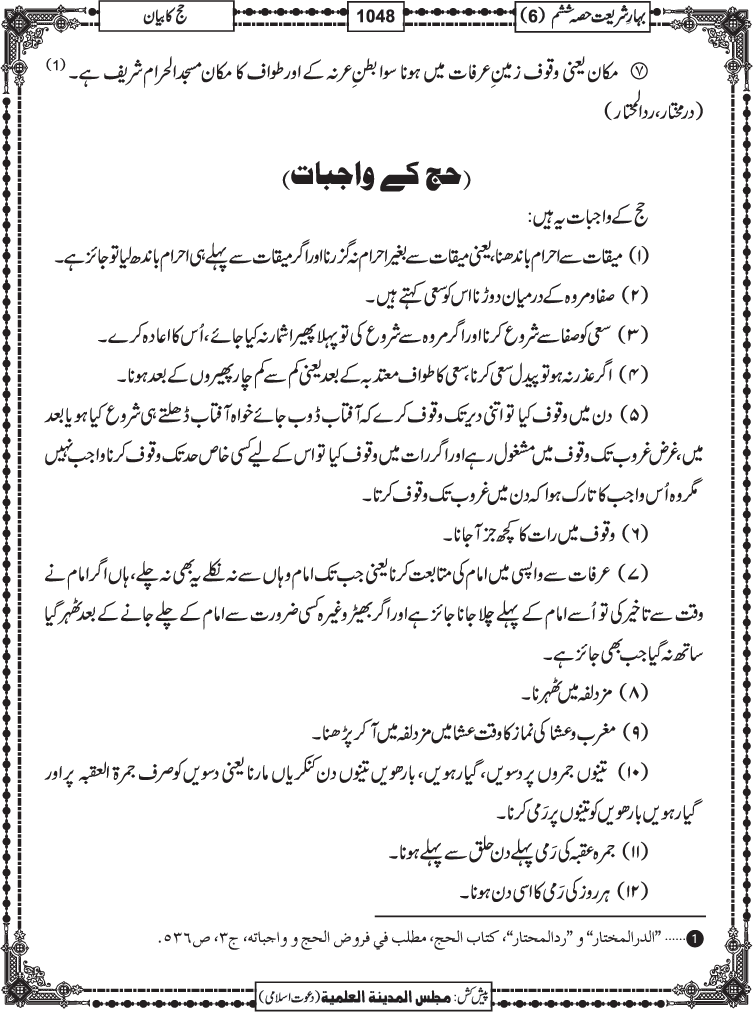 بہارِ شریعت حصہ ششم (6)
1048
حج کا بیان
⑦ مکان یعنی وقوف زمینِ عرفات میں ہونا سوا بطنِ عرنہ کے اور طواف کا مکان مسجد الحرام شریف ہے۔ (1)
(درمختار، ردالمحتار)
(حج کے واجبات)
حج کے واجبات یہ ہیں:
(۱) میقات سے احرام باندھنا، یعنی میقات سے بغیر احرام نہ گزرنا اور اگر میقات سے پہلے ہی احرام باندھ لیا تو جائز ہے۔
(۲) صفا و مروہ کے درمیان دوڑنا اس کو سعی کہتے ہیں۔
(۳) سعی کو صفا سے شروع کرنا اور اگر مروہ سے شروع کی تو پہلا پھیرا شمار نہ کیا جائے، اُس کا اعادہ کرے۔
(۴) اگر عذر نہ ہو تو پیدل سعی کرنا، سعی کا طواف معتدبہ کے بعد یعنی کم سے کم چار پھیروں کے بعد ہونا۔
(۵) دن میں وقوف کیا تو اتنی دیر تک وقوف کرے کہ آفتاب ڈوب جائے خواہ آفتاب ڈھلتے ہی شروع کیا ہو یا بعد
میں، غرض غروب تک وقوف میں مشغول رہے اور اگر رات میں وقوف کیا تو اس کے لیے کسی خاص حد تک وقوف کرنا واجب نہیں
مگر وہ اُس واجب کا تارک ہوا کہ دن میں غروب تک وقوف کرتا۔
(۶) وقوف میں رات کا کچھ جز آ جانا۔
(۷) عرفات سے واپسی میں امام کی متابعت کرنا یعنی جب تک امام وہاں سے نہ نکلے یہ بھی نہ چلے، ہاں اگر امام نے
وقت سے تاخیر کی تو اُسے امام کے پہلے چلا جانا جائز ہے اور اگر بھیڑ وغیرہ کسی ضرورت سے امام کے چلے جانے کے بعد ٹھہر گیا
ساتھ نہ گیا جب بھی جائز ہے۔
(۸) مزدلفہ میں ٹھہرنا۔
(۹) مغرب و عشا کی نماز کا وقت عشا میں مزدلفہ میں آ کر پڑھنا۔
(۱۰) تینوں جمروں پر دسویں، گیارہویں، بارھویں تینوں دن کنکریاں مارنا یعنی دسویں کو صرف جمرۃ العقبہ پر اور
گیارہویں بارھویں کو تینوں پر رَمی کرنا۔
(۱۱) جمرہ عقبہ کی رَمی پہلے دن حلق سے پہلے ہونا۔
(۱۲) ہر روز کی رَمی کا اسی دن ہونا۔
1 ...... "الدرالمختار" و "ردالمحتار"، كتاب الحج، مطلب في فروض الحج و واجباته، ج٣، ص٥٣٦.
پیش کش: مجلس المدینة العلمیة (دعوتِ اسلامی)